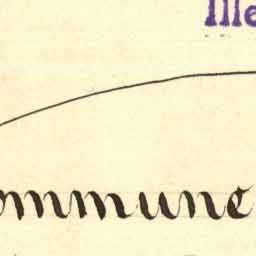 Ille
ommune